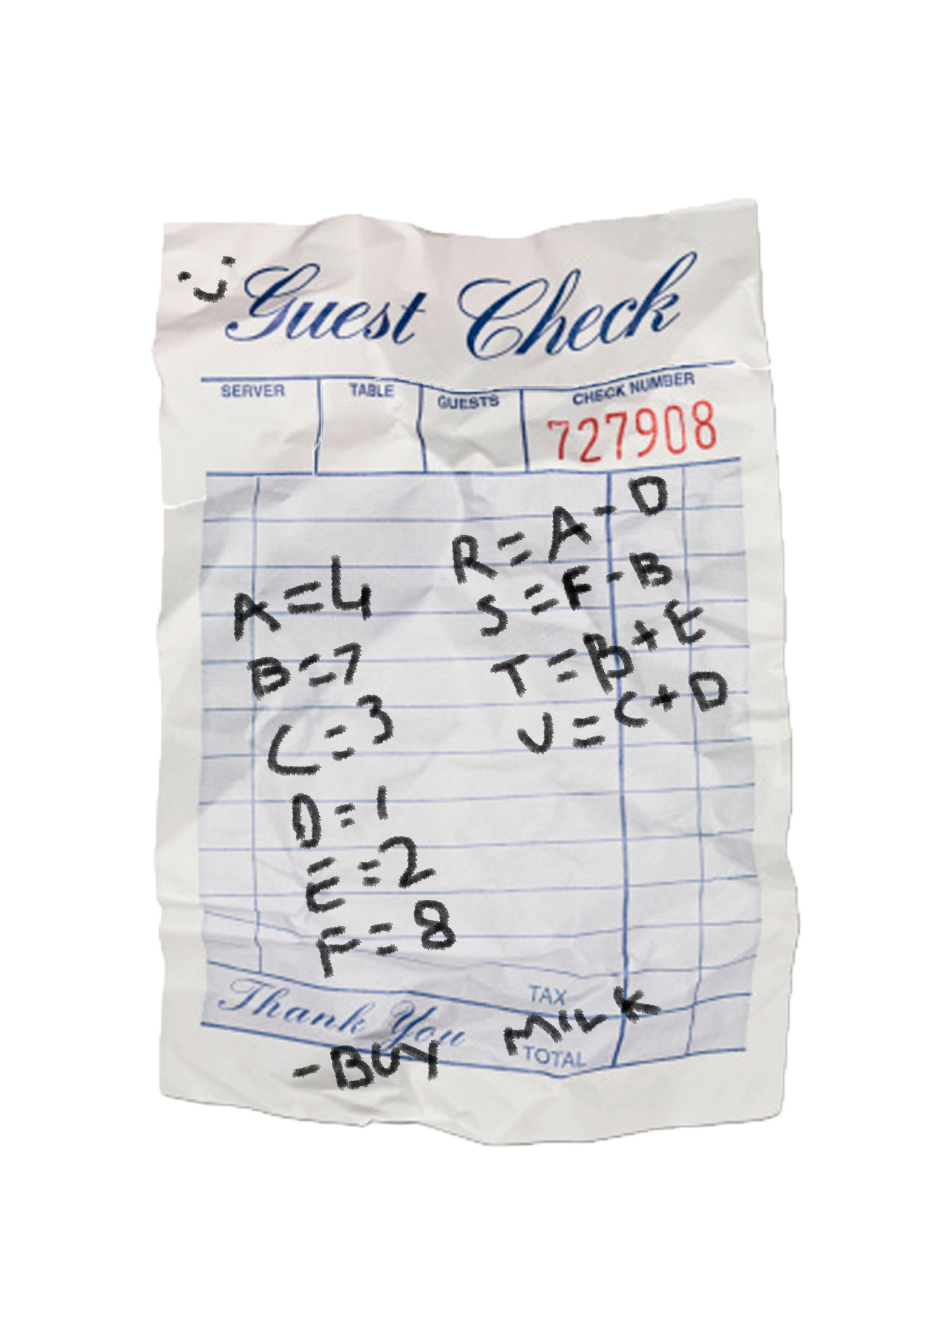 Guest Check
SERVER TABLE GUESTS CHECK NUMBER
727908
A=4
B=7
C=3
D=1
E=2
F=8
R=A-D
S=F-B
T=B+E
U=C+D
Thank You
TAX
TOTAL
-BUY MILK